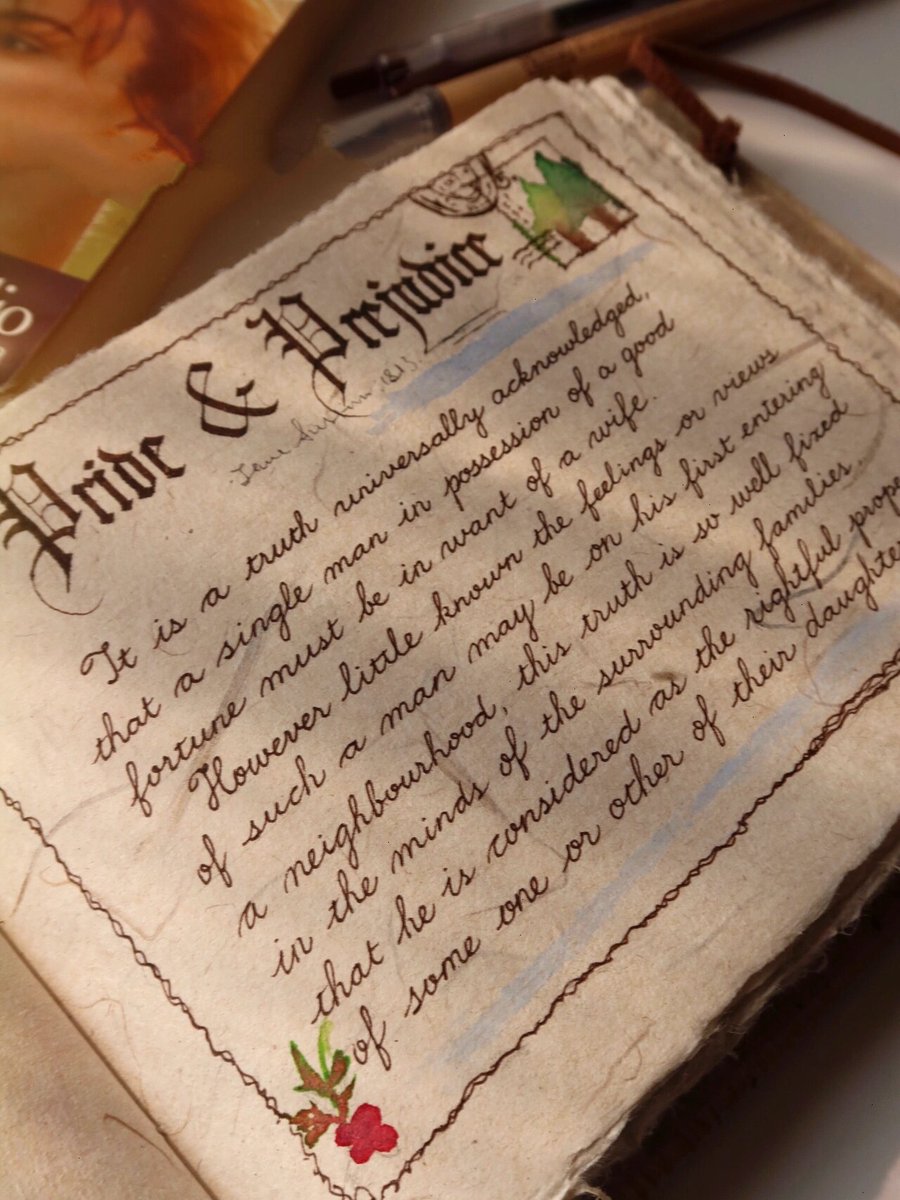 Pride & Prejudice
Jane Austen 1813.
It is a truth universally acknowledged,
that a single man in possession of a good
fortune must be in want of a wife.
However little known the feelings or views
of such a man may be on his first entering
a neighbourhood, this truth is so well fixed
in the minds of the surrounding families
that he is considered as the rightful
of some one or other of their